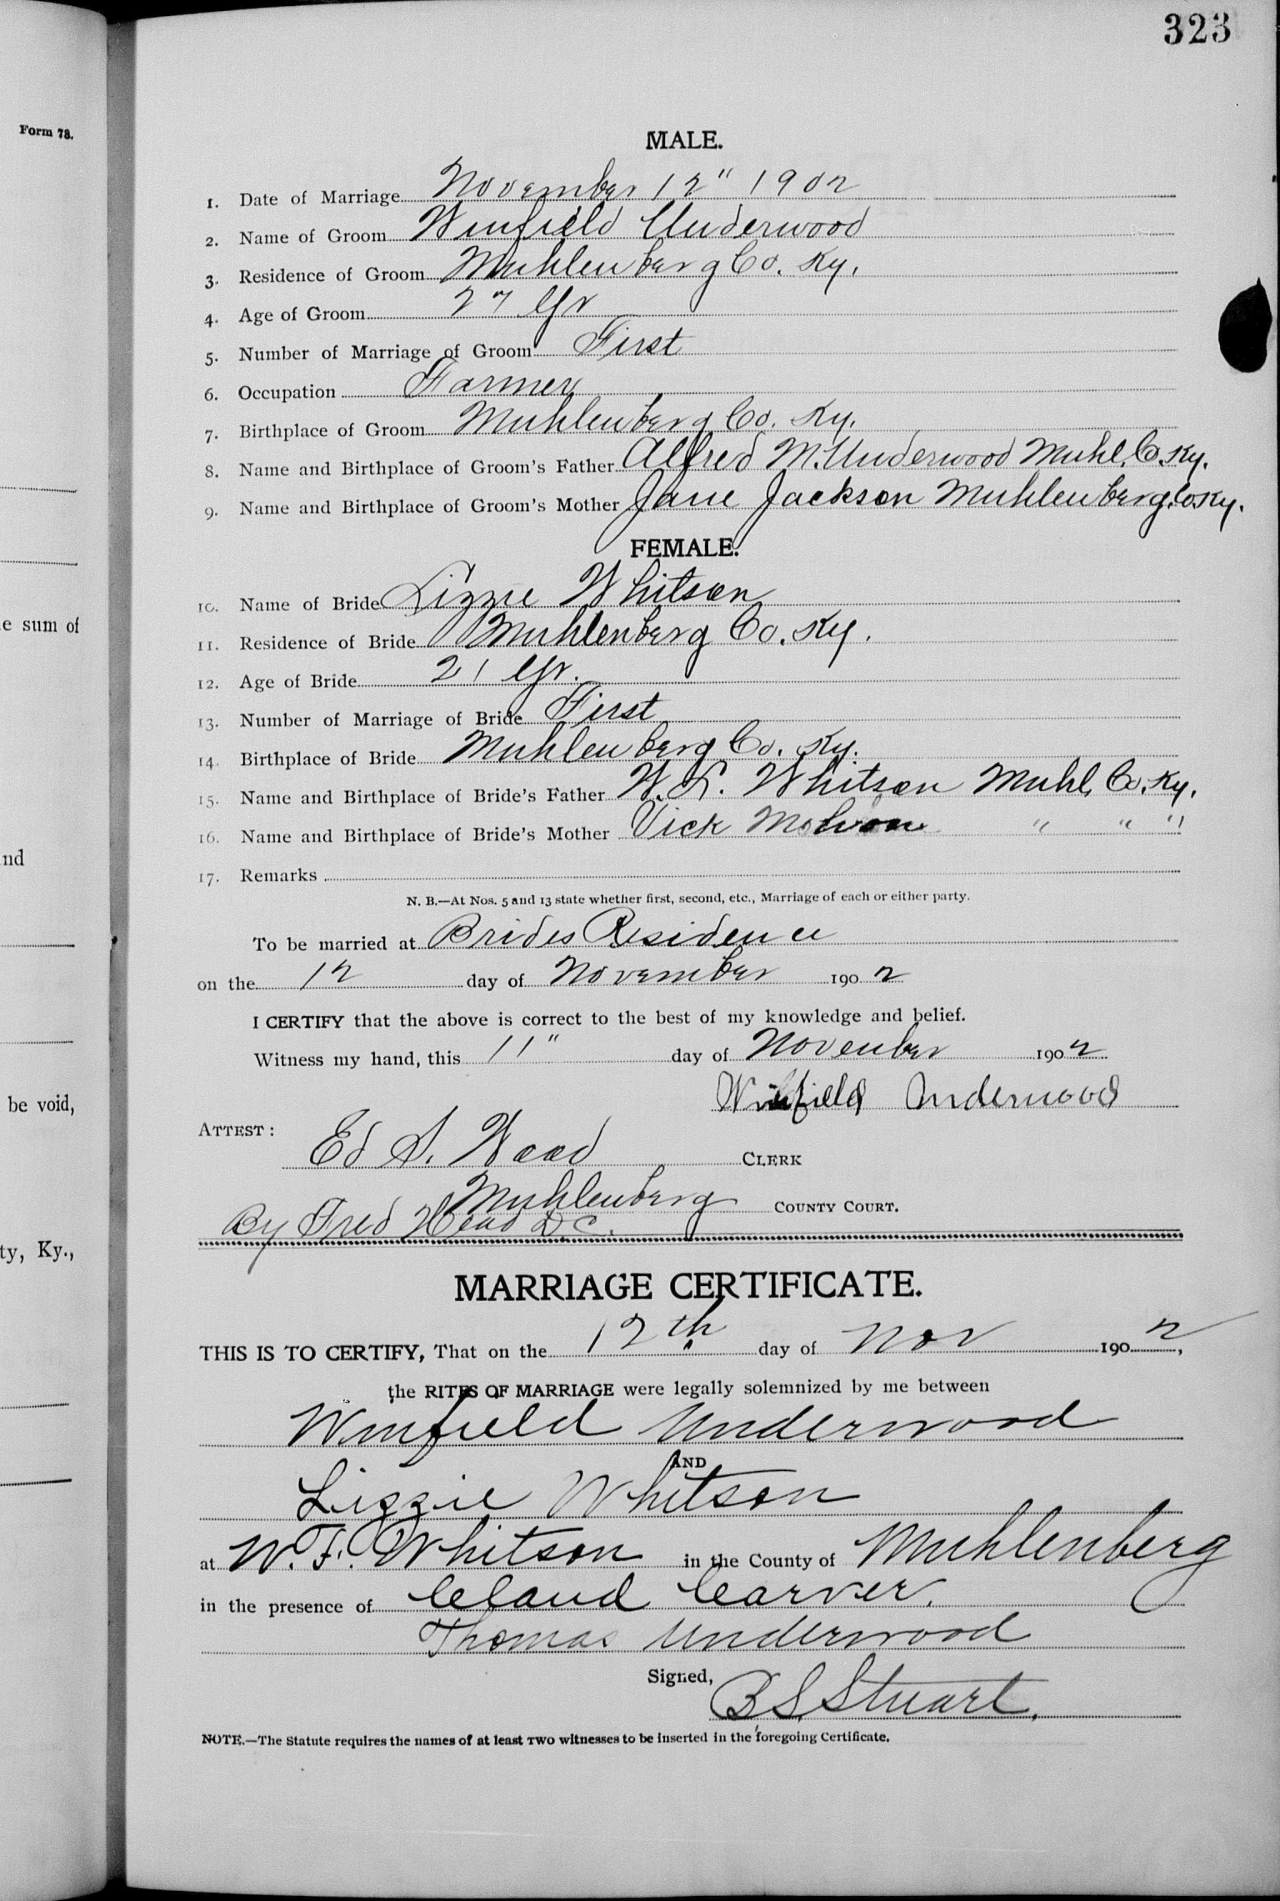 323
Form 78.
MALE.
1. Date of Marriage November 12" 1902
2. Name of Groom Winfield Underwood
3. Residence of Groom Muhlenberg Co. Ky.
4. Age of Groom 27 Yr
5. Number of Marriage of Groom First
6. Occupation Farmer
7. Birthplace of Groom Muhlenberg Co. Ky.
8. Name and Birthplace of Groom's Father Alfred M. Underwood Muhl. Co. Ky.
9. Name and Birthplace of Groom's Mother Jane Jackson Muhlenberg Co Ky.
FEMALE.
10. Name of Bride Lizzie Whitson
11. Residence of Bride Muhlenberg Co. Ky.
12. Age of Bride 21 Yr.
13. Number of Marriage of Bride First
14. Birthplace of Bride Muhlenberg Co. Ky.
15. Name and Birthplace of Bride's Father Whitson Muhl. Co. Ky.
16. Name and Birthplace of Bride's Mother Vick " " "
17. Remarks
N. B.—At Nos. 5 and 13 state whether first, second, etc., Marriage of each or either party.
To be married at Brides Residence
on the 12 day of November 1902
I CERTIFY that the above is correct to the best of my knowledge and belief.
Witness my hand, this 11" day of November 1902
Winfield Underwood
ATTEST:
Ed S. Wood CLERK
Muhlenberg COUNTY COURT.
By Fred Head D.C.
MARRIAGE CERTIFICATE.
THIS IS TO CERTIFY, That on the 12th day of Nov 1902,
the RITES OF MARRIAGE were legally solemnized by me between
Winfield Underwood
AND
Lizzie Whitson
at W. F. Whitson in the County of Muhlenberg
in the presence of Claud Carver.
Thomas Underwood
Signed, B.S. Stuart.
NOTE.—The Statute requires the names of at least TWO witnesses to be inserted in the foregoing Certificate.
e sum of
nd
be void,
ty, Ky.,